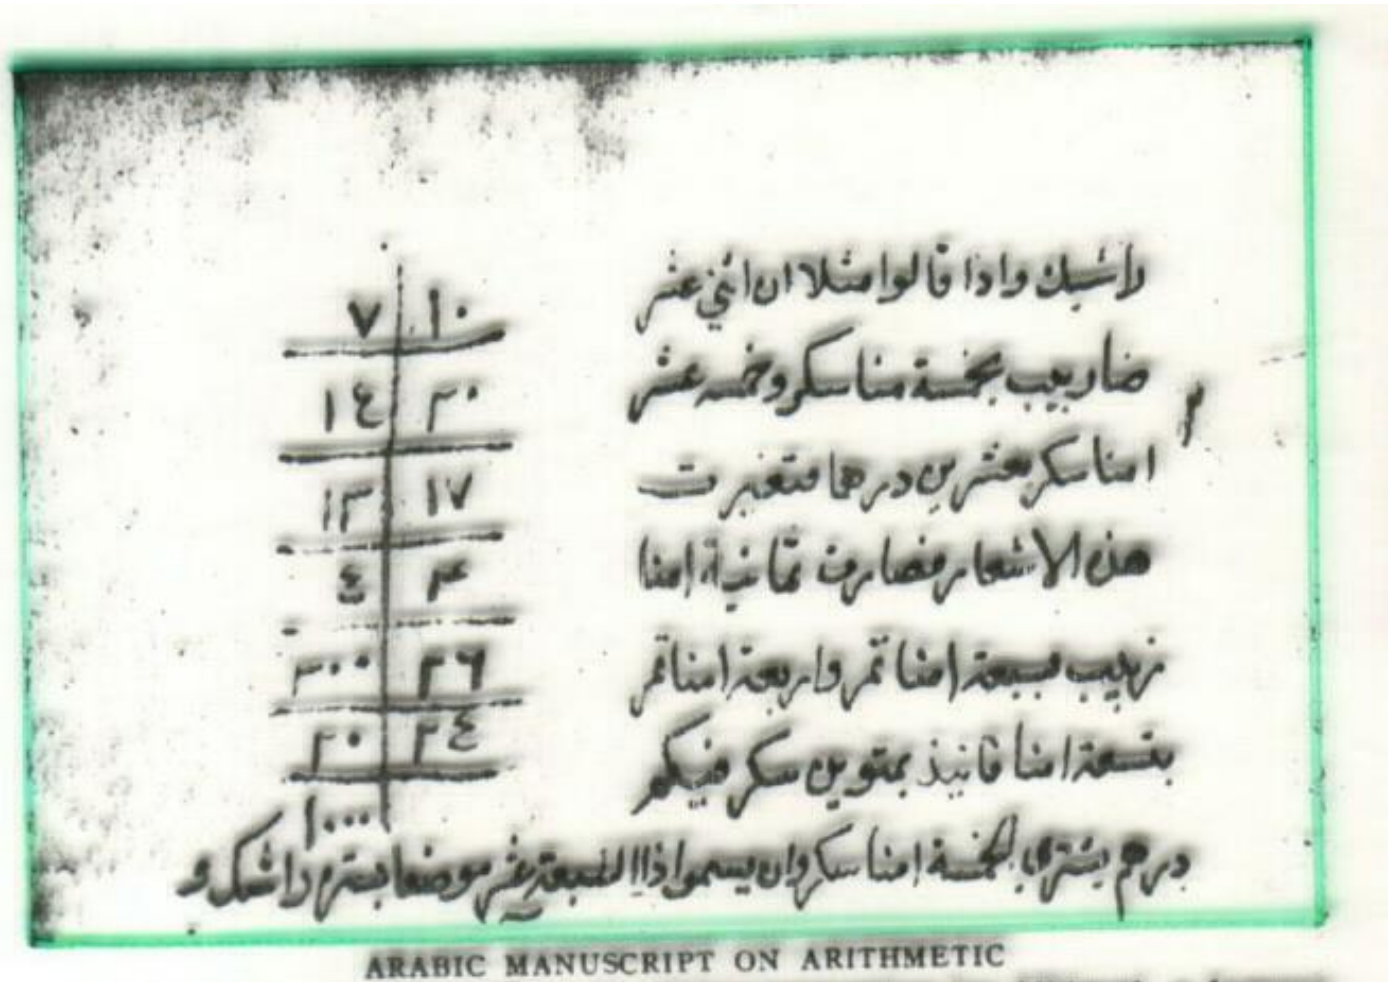 راشيك واذا قالوا مثلا ان اثني عشر
بخمسة منا سكر وخمسه عشر
امنا سكر بعشرين درهما فتغيرت
هذه الاشعار فصارت ثمانية امنا
زبيب بسبعة امنا تمر واربعة امنا تمر
بتسعة امنا فانيذ بمنوين سكر فبكم
درهم يشتري الخمسة امنا سكر وان يسموا
١٠ ٧
٢٠ ١٤
١٧ ١٣
٣ ٤
٢٦ ٣٠٠
٢٤ ٢٠
١٠٠٠
ARABIC MANUSCRIPT ON ARITHMETIC